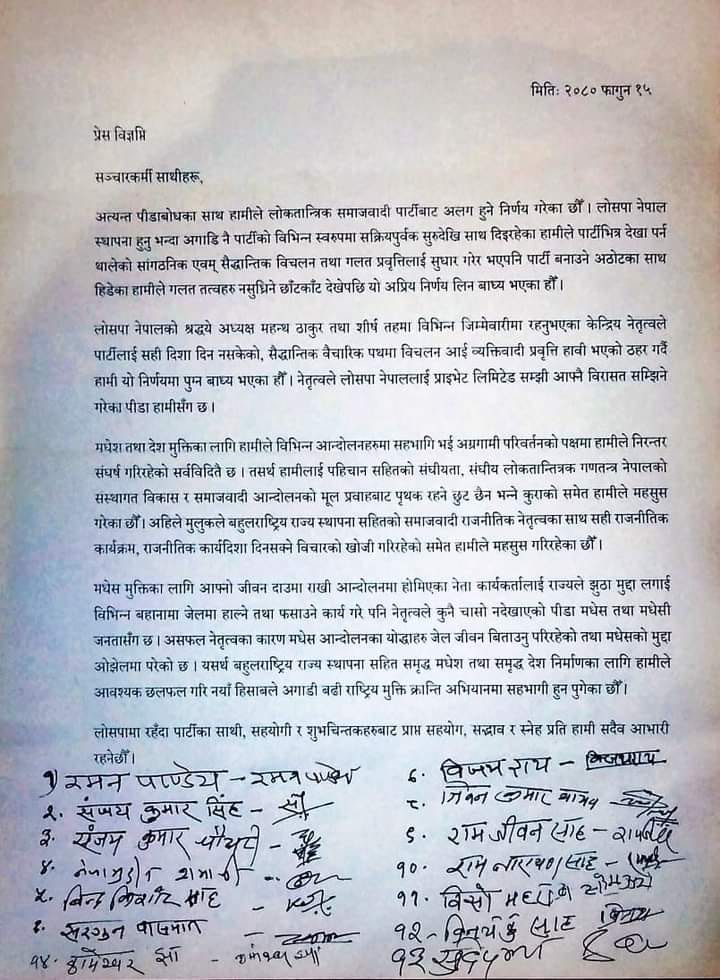 मितिः २०८० फागुन १५
प्रेस विज्ञप्ति
सञ्चारकर्मी साथीहरू,
अत्यन्त पीडाबोधका साथ हामीले लोकतान्त्रिक समाजवादी पार्टीबाट अलग हुने निर्णय गरेका छौँ । लोसपा नेपाल
स्थापना हुनु भन्दा अगाडि नै पार्टीको विभिन्न स्वरुपमा सक्रियपुर्वक सुरुदेखि साथ दिइरहेका हामीले पार्टीभित्र देखा पर्न
थालेको सांगठनिक एवम् सैद्धान्तिक विचलन तथा गलत प्रवृत्तिलाई सुधार गरेर भएपनि पार्टी बनाउने अठोटका साथ
हिडेका हामीले गलत तत्वहरु नसुध्रिने छाँटकाँट देखेपछि यो अप्रिय निर्णय लिन बाध्य भएका हौँ ।
लोसपा नेपालको श्रद्धये अध्यक्ष महन्थ ठाकुर तथा शीर्ष तहमा विभिन्न जिम्मेवारीमा रहनुभएका केन्द्रिय नेतृत्वले
पार्टीलाई सही दिशा दिन नसकेको, सैद्धान्तिक वैचारिक पथमा विचलन आई व्यक्तिवादी प्रवृत्ति हावी भएको ठहर गर्दै
हामी यो निर्णयमा पुग्न बाध्य भएका हौँ । नेतृत्वले लोसपा नेपाललाई प्राइभेट लिमिटेड सम्झी आफ्नै विरासत सम्झिने
गरेका पीडा हामीसँग छ ।
मधेश तथा देश मुक्तिका लागि हामीले विभिन्न आन्दोलनहरुमा सहभागि भई अग्रगामी परिवर्तनको पक्षमा हामीले निरन्तर
संघर्ष गरिरहेको सर्वविदितै छ । तसर्थ हामीलाई पहिचान सहितको संघीयता, संघीय लोकतान्त्रिक गणतन्त्र नेपालको
संस्थागत विकास र समाजवादी आन्दोलनको मूल प्रवाहबाट पृथक रहने छुट छैन भन्ने कुराको समेत हामीले महसुस
गरेका छौँ । अहिले मुलुकले बहुलराष्ट्रिय राज्य स्थापना सहितको समाजवादी राजनीतिक नेतृत्वका साथ सही राजनीतिक
कार्यक्रम, राजनीतिक कार्यदिशा दिनसक्ने विचारको खोजी गरिरहेको समेत हामीले महसुस गरिरहेका छौँ ।
मधेस मुक्तिका लागि आफ्नो जीवन दाउमा राखी आन्दोलनमा होमिएका नेता कार्यकर्तालाई राज्यले झुठा मुद्दा लगाई
विभिन्न बहानामा जेलमा हाल्ने तथा फसाउने कार्य गरे पनि नेतृत्वले कुनै चासो नदेखाएको पीडा मधेस तथा मधेसी
जनतासँग छ । असफल नेतृत्वका कारण मधेस आन्दोलनका योद्धाहरु जेल जीवन बिताउनु परिरहेको तथा मधेसको मुद्दा
ओझेलमा परेको छ । यसर्थ बहुलराष्ट्रिय राज्य स्थापना सहित समृद्ध मधेश तथा समृद्ध देश निर्माणका लागि हामीले
आवश्यक छलफल गरि नयाँ हिसाबले अगाडी बढी राष्ट्रिय मुक्ति क्रान्ति अभियानमा सहभागी हुन पुगेका छौँ ।
लोसपामा रहँदा पार्टीका साथी, सहयोगी र शुभचिन्तकहरुबाट प्राप्त सहयोग, सद्भाव र स्नेह प्रति हामी सदैव आभारी
रहनेछौँ ।
१) रमन पाण्डेय - रमन पाण्डेय
२. संजय कुमार सिंह -
३. संजय कुमार चौधरी -
४.
५. साह
६. सरगुन -
१४.
८. विजय राय -
८. कुमार
९. रामजीवन साह -
१०. राम नारायण साह -
११.
१२. साह
१३